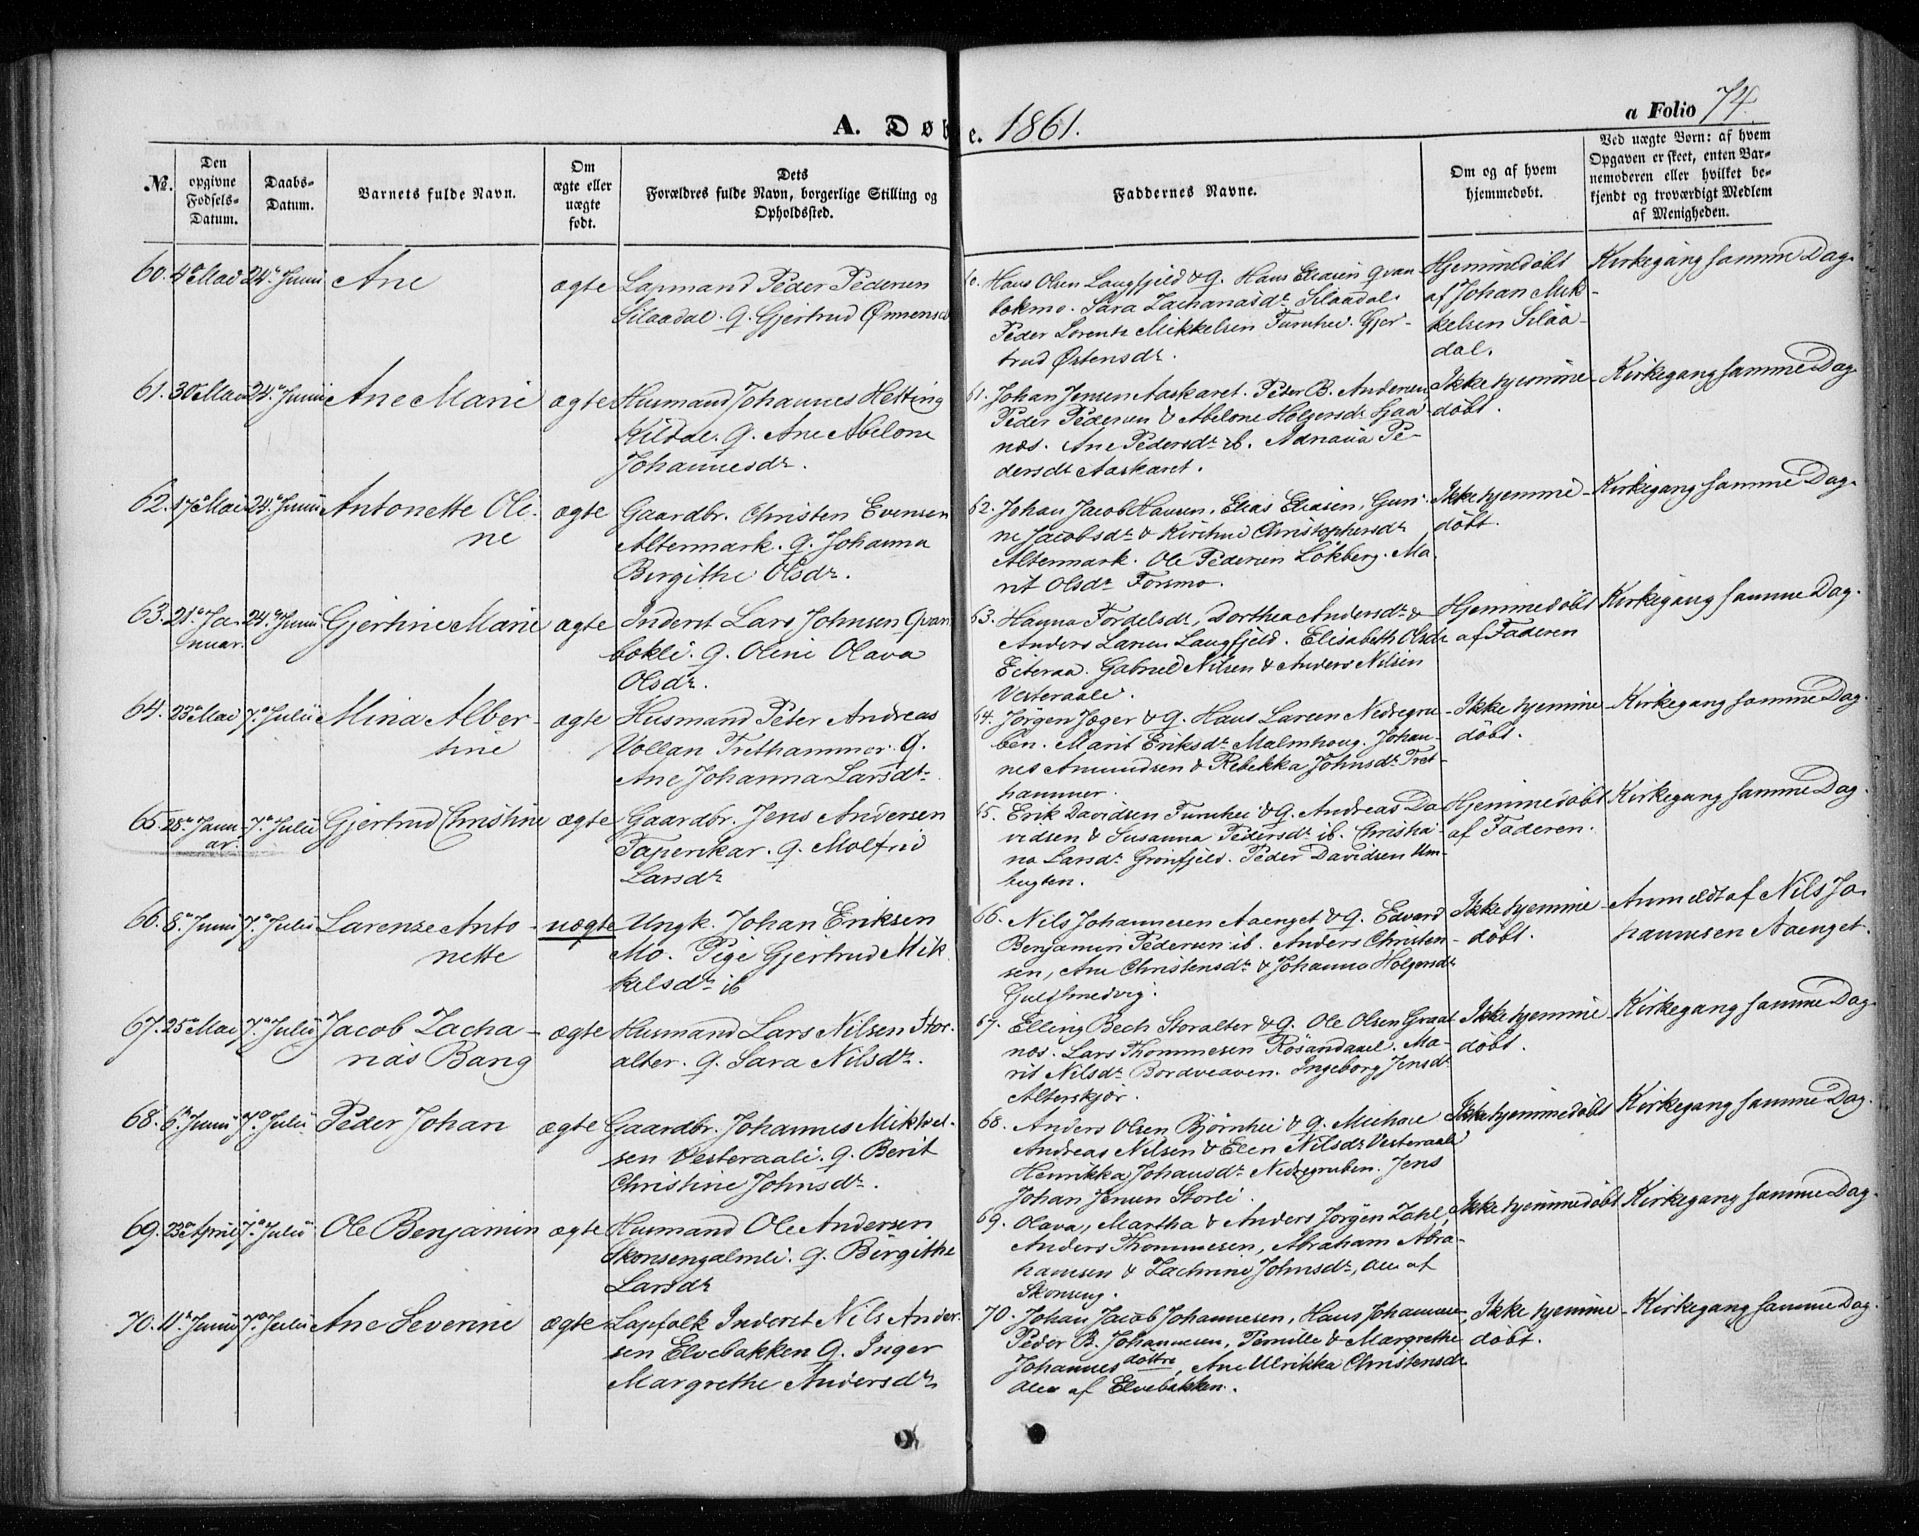 A. Døbte. 1861.
a Folio 74.
№.
Den opgivne Fødsels-Datum.
Daabs-Datum.
Barnets fulde Navn.
Om ægte eller uægte født.
Dets
Forældres fulde Navn, borgerlige Stilling og
Opholdssted.
Faddernes Navne.
Om og af hvem
hjemmedøbt.
Ved uægte Børn: af hvem
Opgaven er skeet, enten Bar-
nemoderen eller hvilket be-
kjendt og troværdigt Medlem
af Menigheden.
60. 4de Mai 24de Juni Ane ægte
Lapmand Peder Pedersen
Silaadal. Q. Gjertrud
60. Hans Olsen Langfjeld & Q. Hans Eliasen Qvan-
bokmo. Sara Zachariasdr Silaadal.
Peder Lorents Mikkelsen Furuhei. Gjer-
trud Østensdr.
Hjemmedøbt
af Johan Mik-
kelsen Silaa-
dal.
Kirkegang samme Dag.
61. 30te Mai 24de Juni Ane Marie ægte
Husmand Johannes Hetting
Kildal. Q. Ane Abelone
Johannesdr.
61. Johan Jensen Aaskaret. Peter B. Andersen
Peder Pedersen & Abelone Holgersdr Sjaa-
næs. Ane Pedersdr ib. Adriana Pe-
dersdr Aaskaret.
Ikke hjemme-
døbt.
Kirkegang samme Dag.
62. 17de Mai 24de Juni Antonette Oli-
ne ægte
Gaardbr. Christen Evensen
Altermark. Q. Johanna
Birgithe Olsdr.
62. Johan Jacob Hansen, Elias Eliasen, Guri-
ne Jacobsdr & Kirstine Christophersdr
Altermark. Ole Pedersen Lökberg. Ma-
rit Olsdr Forsmo.
Ikke hjemme-
døbt.
Kirkegang samme Dag.
63. 21de Ja-
nuar. 24de Juni Gjertine Marie ægte
Inderst Lars Johnsen Qvan-
bokli. Q. Oline Olava
Olsdr.
63. Hanna Fordelsdr, Dorthea Andersdr &
Anders Larsen Langfjeld. Elisabeth Olsdr
Eiteraa. Gabriel Nilsen & Anders Nilsen
Vesteraali.
Hjemmedøbt
af Faderen
Kirkegang samme Dag.
64. 23de Mai 7de Julii Mina Alber-
tine ægte
Husmand Peter Andreas
Vollan Trethammer. Q.
Ane Johanna Larsdr.
64. Jörgen Jæger & Q. Hans Larsen Nedregru-
ben. Marit Eriksdr Malmhoug. Johan-
nes Amundsen & Rebekka Johnsdr Tret-
hammer.
Ikke hjemme-
døbt.
Kirkegang samme Dag.
65. 28de Janu-
ar. 7de Julii Gjertrud Christine ægte
Gaardbr. Jens Andersen
Taperskar. Q. Molfrid
Larsdr
65. Erik Davidsen Furuhei & Q. Andreas Da-
vidsen & Susanna Pedersdr ib. Christia-
na Larsdr Grönfjeld. Peder Davidsen Um-
bugten.
Hjemmedøbt
af Faderen.
Kirkegang samme Dag.
66. 8de Juni 7de Julii Larenze Anto-
nette uægte
Ungk. Johan Eriksen
Mo. Pige Gjertrud Mik-
kelsdr ib
66. Nils Johannesen Aaenget & Q. Edvard
Benjamin Pedersen ib. Anders Christen-
sen, Ane Christensdr & Johanna Holgersdr
Guldsmedvig.
Ikke hjemme-
døbt.
Anmeldt af Nils Jo-
hannesen Aaenget.
67. 25de Mai 7de Julii Jacob Zacha-
rias Bang ægte
Husmand Lars Nilsen Stor-
alter. Q. Sara Nilsdr.
67. Elling Bech Storalter & Q. Ole Olsen Graat-
næs. Lars Thommesen Rösandaxel. Ma-
rit Nilsdr Bordveaven. Ingeborg Jensdr
Alterskjær.
Ikke hjemme-
døbt.
Kirkegang samme Dag.
68. 6te Juni 7de Julii Peder Johan ægte
Gaardbr. Johannes Mikkel-
sen Vesteraali. Q. Berit
Christine Johnsdr.
68. Anders Olsen Bjørnhei & Q. Michael
Andreas Nilsen & Elen Nilsdr Vesteraali
Henrikka Johansdr Nedregruben. Jens
Johan Jensen Storli.
Ikke hjemmedøbt
Kirkegang samme Dag.
69. 23de April 7de Julii Ole Benjamin ægte
Husmand Ole Andersen
Skonsengalmli. Q. Birgithe
Larsdr
69. Olava, Martha & Anders Jörgen Zahl,
Anders Thommesen, Abraham Abra-
hamsen & Zachrine Johnsdr, Alle af
Skonseng.
Ikke hjemmedøbt
Kirkegang samme Dag.
70. 11te Juni 7de Julii Ane Severine ægte
Lapfolk Inderst Nils Ander-
sen Elvebakken Q. Inger
Margrethe Andersdr
70. Johan Jacob Johannesen, Hans Johannesen,
Peder B. Johannesen, Pernille & Margrethe
Johannesdöttre, Ane Ulrikka Christensdr
Alle af Elvebakken.
Ikke hjemme-
døbt.
Kirkegang samme Dag.